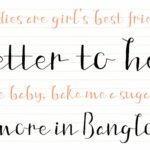 dies are girl's best frie
etter to he
e baby, bake me a suga
more in Banglo